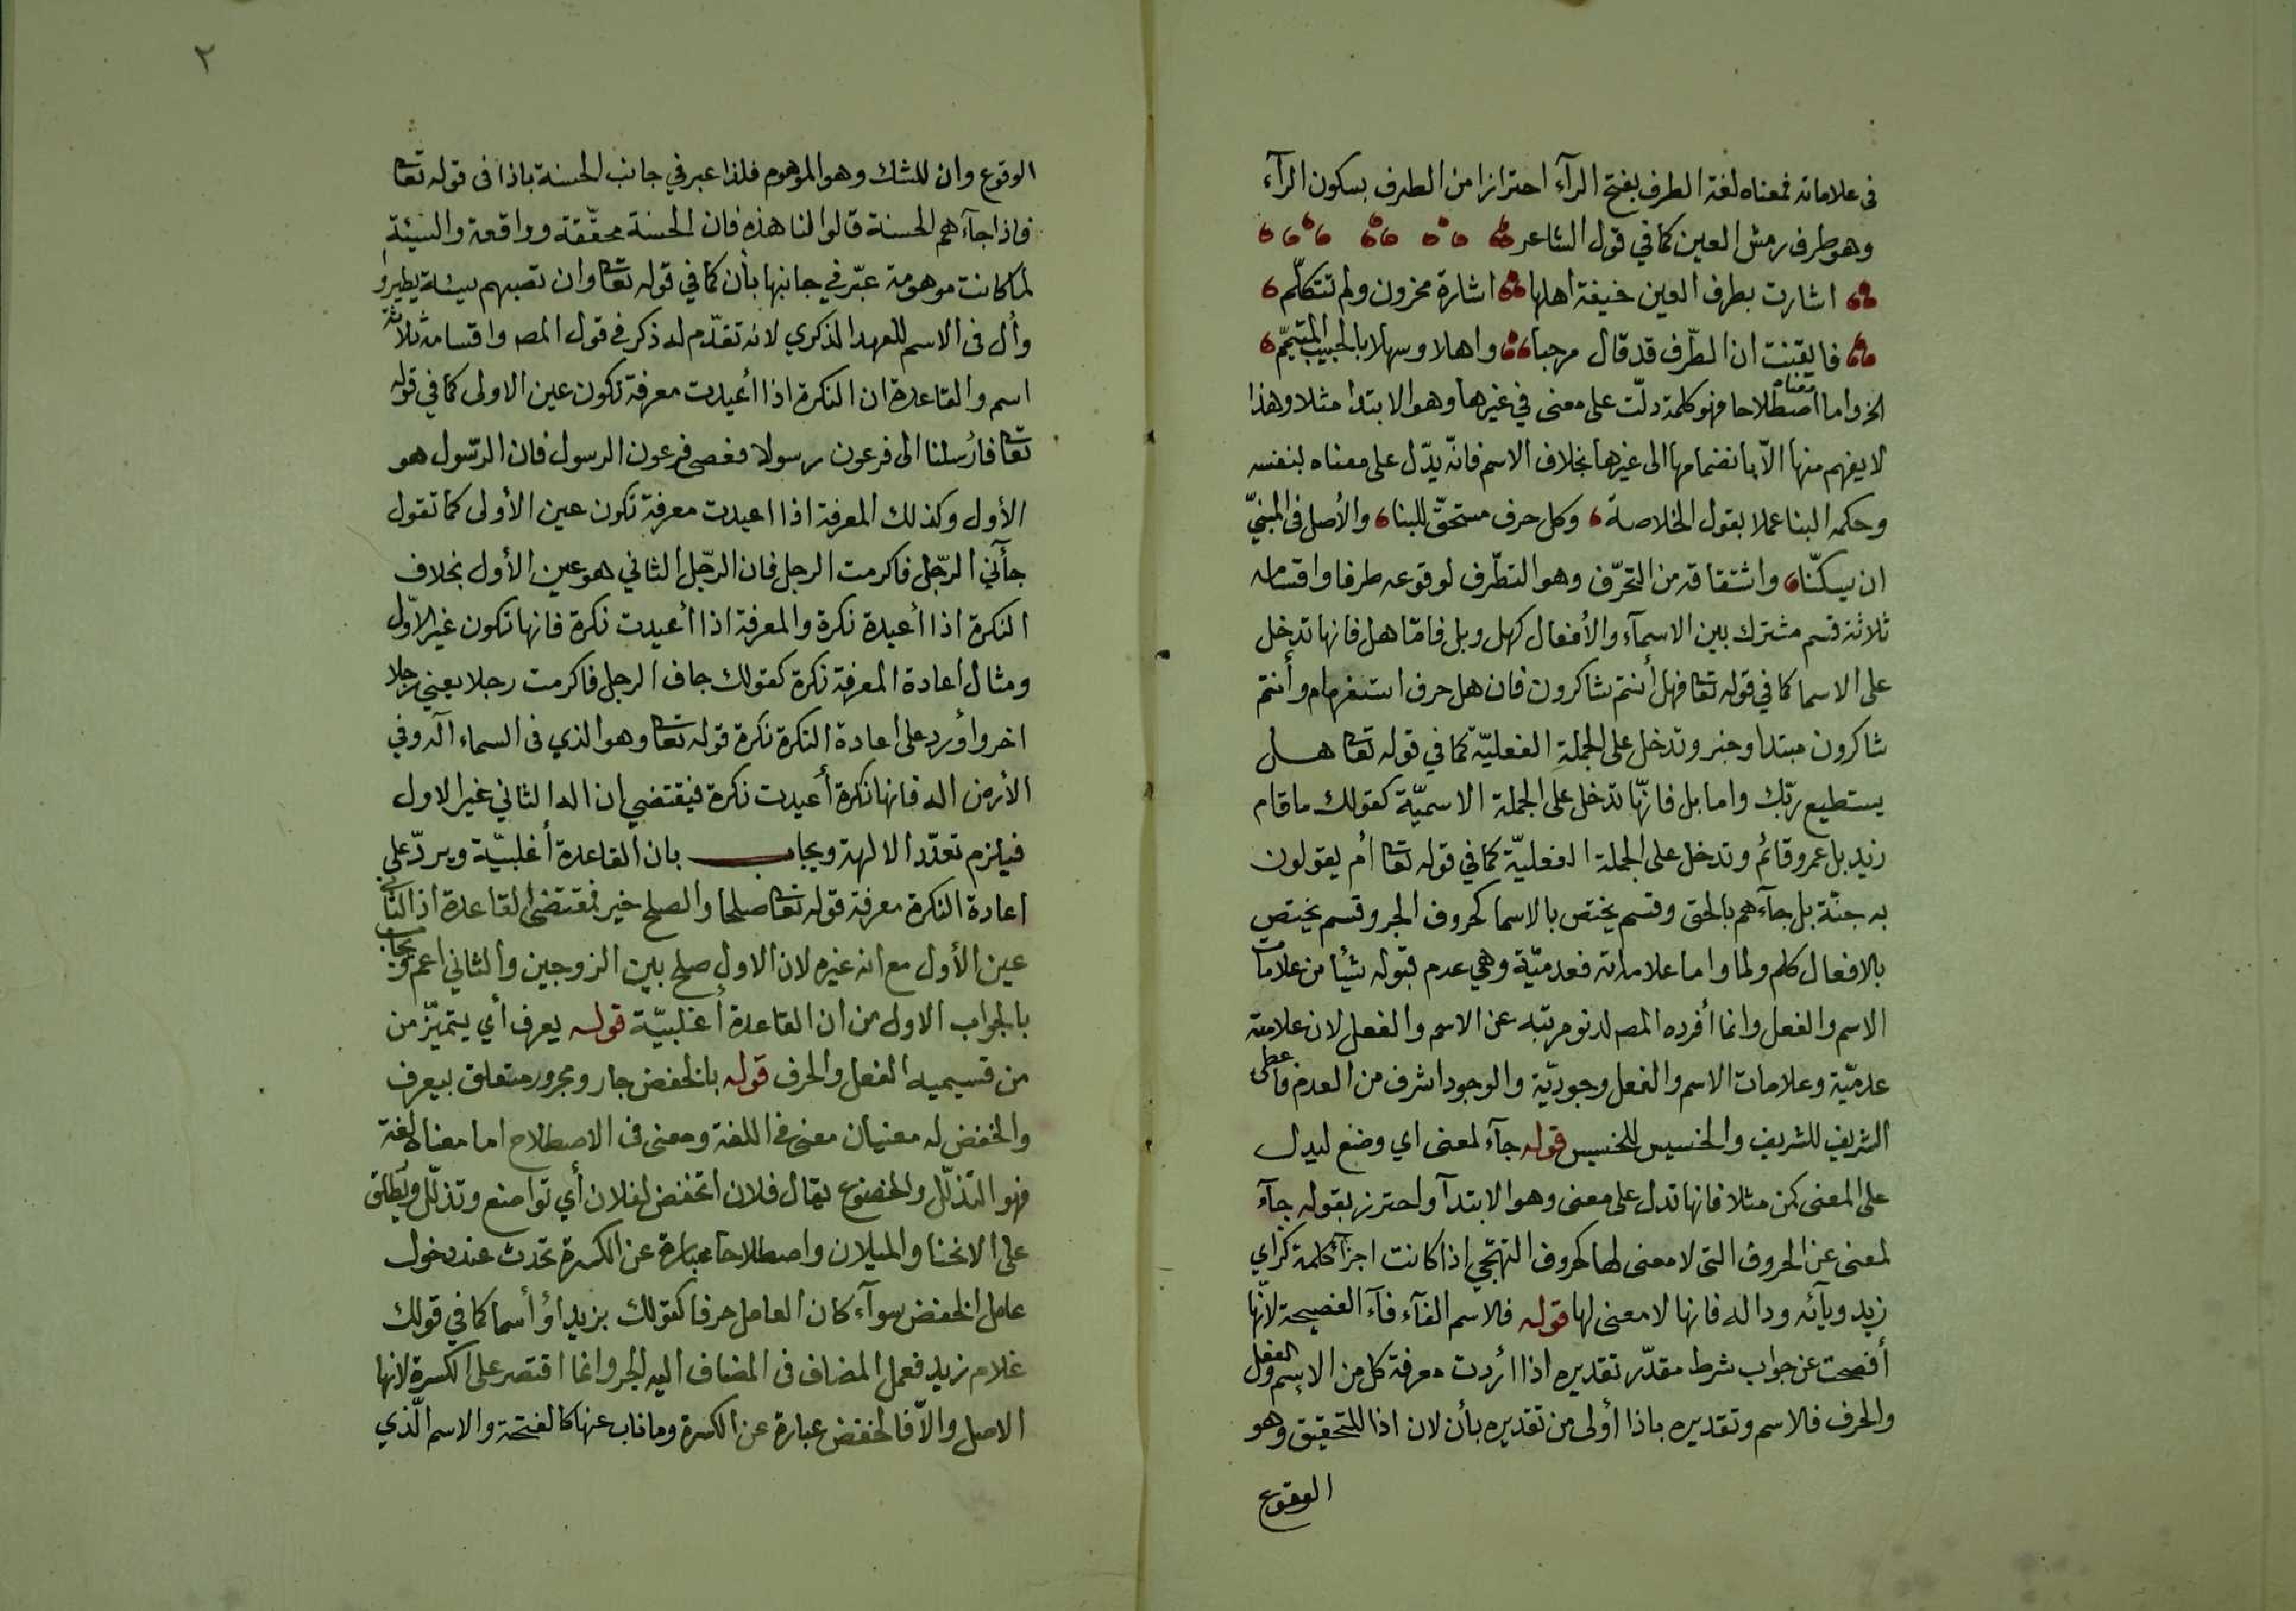 في علاماته فمعناه لغة الطرف بفتح الرآء احترازا من الطرف بسكون الرآء
وهو طرف رمش العين كما في قول الشاعر
اشارت بطرف العين خيفة اهلها اشارة محزون ولم تتكلّم
فايقنت ان الطّرف قد قال مرحبا واهلا وسهلا بالحبيب المتيّم
الخ واما معناه اصطلاحا فهو كلمة دلّت على معنى في غيرها وهو الابتدا مثلا وهذا
لا يفهم منها الاّ بانضمامها الى غيرها بخلاف الاسم فانّه يدّل على معناه بنفسه
وحكمه البنا عملا بقول الخلاصة وكل حرف مستحقّ للبنا والأصل في المبنيّ
ان يسكّنا واشتقاقه من التحرّف وهو التطّرف لوقوعه طرفا واقسامه
ثلاثة قسم مشترك بين الاسمآء والأفعال كهل وبل فامّا هل فانها تدخل
على الاسما كما في قوله تعا فهل أنتم شاكرون فان هل حرف استفهام وأنتم
شاكرون مبتدا وخبر وتدخل على الجملة الفعليّة كما في قوله تعا هل
يستطيع ربّك واما بل فانّها تدخل على الجملة الاسميّة كقولك ما قام
زيد بل عمرو قائم وتدخل على الجملة الفعليّة كما في قوله تعا أم يقولون
به جنّة بل جآءهم بالحق وقسم يختص بالاسما كحروف الجر وقسم يختص
بالافعال كلم ولما واما علاماته فعدميّة وهي عدم قبوله شئا من علامات
الاسم والفعل وانما أفرده المصـ لدنو مرتبه عن الاسم والفعل لان علامته
عدميّة وعلامات الاسم والفعل وجوديّة والوجود اشرف من العدم فأعطى
الشريف للشريف والخسيس للخسيس قوله جآء لمعنى اي وضع ليدل
على المعنى كمن مثلا فانها تدل على معنى وهو الابتدآ واحترز بقوله جآء
لمعنى عن الحروف التي لا معنى لها كحروف التهجّي اذا كانت اجزآء كلمة كزاي
زيد ويآئه وداله فانها لا معنى لها قوله فالاسم الفآء فآء الفصيحة لانّها
أفصحت عن جواب شرط مقدّر تقديره اذا أردت معرفة كل من الاسم والفعل
والحرف فالاسم وتقديره باذا أولى من تقديره بأن لان اذا للتحقيق وهو
الوقوع
٢
الوقوع وان للشك وهو الموهوم فلذا عبر في جانب الحسنة باذا في قوله تعا
فاذا جآءهم الحسنة قالوا لنا هذه فان الحسنة محقّقة وواقعة والسيئة
لما كانت موهومة عبّر في جانبها بأن كما في قوله تعا وان تصبهم سيئة يطيروا
وأل في الاسم للعهد الذكري لانه تقدّم له ذكر في قول المصـ واقسامه ثلاثة
اسم والقاعدة ان النكرة اذا أعيدت معرفة تكون عين الاولى كما في قوله
تعا فأرسلنا الى فرعون رسولا فعصى فرعون الرسول فان الرسّول هو
الأول وكذلك المعرفة اذا اعيدت معرفة تكون عين الأولى كما تقول
جآني الرجّل فاكرمت الرجل فان الرجّل الثاني هو عين الأول بخلاف
النكرة اذا أعيدة نكرة والمعرفة اذا أعيدت نكرة فانها تكون غير الاوّل
ومثال اعادة المعرفة نكرة كقولك جاف الرجل فاكرمت رجلا يعني رجلا
اخر وأورد على اعادة النكرة نكرة قوله تعا وهو الذي في السماء اله وفي
الأرض اله فانها نكرة أعيدت نكرة فيقتضي ان اله الثاني غير الاول
فيلزم تعدّد الالهة ويجاب بان القاعدة أغلبيّة ويردّ على
اعادة النكرة معرفة قوله تعا صلحا والصلح خير فمقتضى القاعدة اذ الثاني
عين الأول مع انه غيره لان الاول صلح بين الزوجين والثاني اعم ويجاب
بالجواب الاول من ان القاعدة أغلبيّة قوله يعرف أي يتميّز من
من قسيميه الفعل والحرف قوله بالخفض جار ومجرور متعلق بيعرف
والخفض له معنيان معنى في اللغة ومعنى في الاصطلاح اما معناه لغة
فهو التذلّل والخضوع يقال فلان انخفض لفلان أي تواضع وتذلّل ويطلق
على الانحنا والميلان واصطلاحا عبارة عن الكسرة تحدث عند دخول
عامل الخفض سوآء كان العامل حرفا كقولك بزيد اؤ أسما كما في قولك
غلام زيد فعمل المضاف في المضاف اليه الجر وانما اقتصر على الكسرة لانها
الاصل والاّ فالخفض عبارة عن الكسرة وما ناب عنها كالفتحة والاسم الّذي